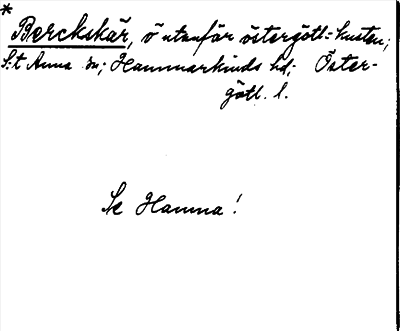 * Berckskär, ö utanför östergötl:-kusten;
S:t Anna sn; Hammarkinds hd; Öster-
götl. l.
Se Hamna!